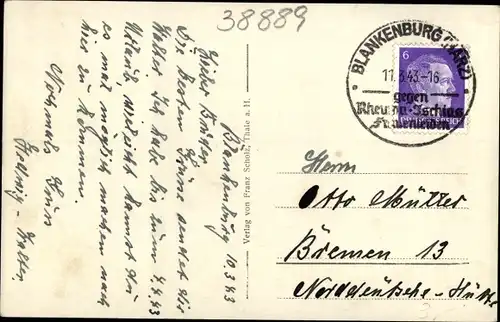 38889
Blankenburg 10.3.43
Lieber Bruder
Die besten Grüsse sendet Dir
Walter. Ich habe bis zum 4.4.43
Urlaub, vielleicht kannst Du
es mal möglich machen nach
hier zu kommen.
Nochmals Gruss
Hedwig - Walter
Verlag von Franz Scholz, Thale a. H.
BLANKENBURG (HARZ)
11.3.43-16
gegen
Rheuma-Ischias-
Frauenleiden
6
Herrn
Otto Mütter
Bremen 13
Norddeutsche-Hütte